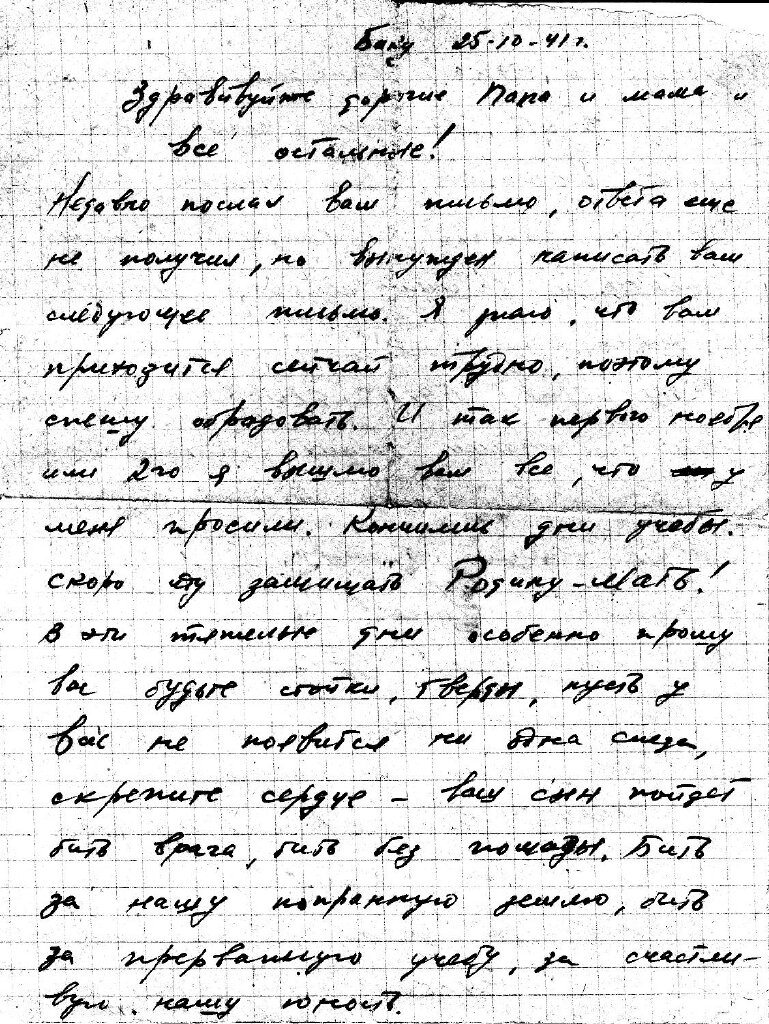 Баку 25-10-41 г.
Здравствуйте дорогие Папа и мама и
все остальные!
Недавно послал вам письмо, ответа еще
не получил, но вынужден написать вам
следующее письмо. Я знаю, что вам
приходится сейчас трудно, поэтому
спешу обрадовать. И так первого ноября
или 2го я вышлю вам все, что у
меня просили. Кончились дни учебы.
скоро иду защищать Родину-мать!
В эти тяжелые дни особенно прошу
вас будьте стойки, тверды, пусть у
вас не появится ни одна слеза,
скрепите сердце – ваш сын пойдет
бить врага, бить без пощады. Бить
за нашу попранную землю, бить
за прерванную учебу, за счастли-
вую нашу юность.